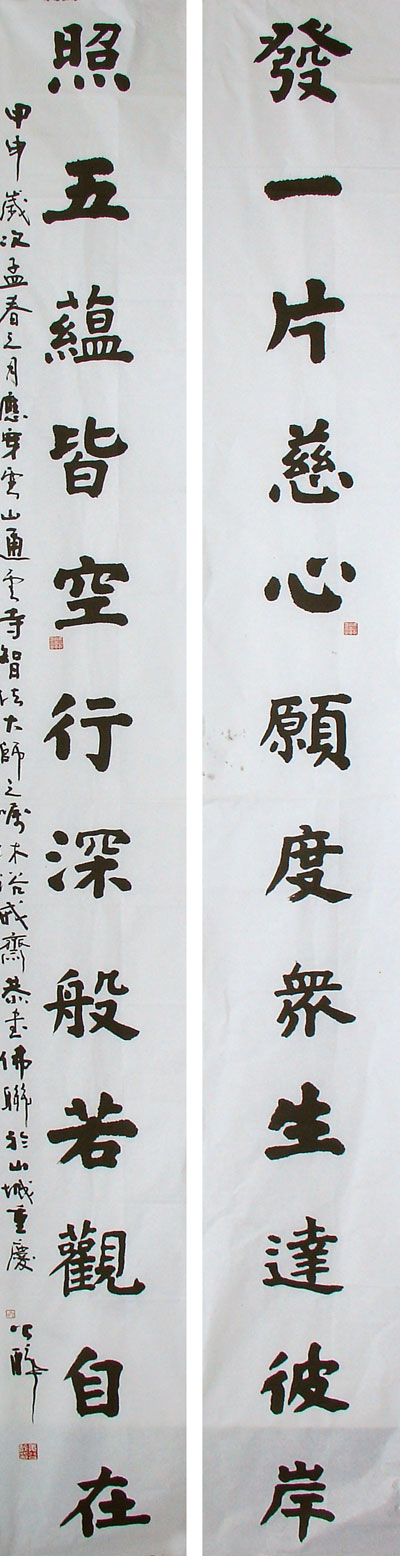 發一片慈心願度眾生達彼岸
照五蘊皆空行深般若觀自在
甲申歲次孟春之月應穿雲山通雲寺智法大師之囑沐浴戒齋恭書佛聯於山城重慶